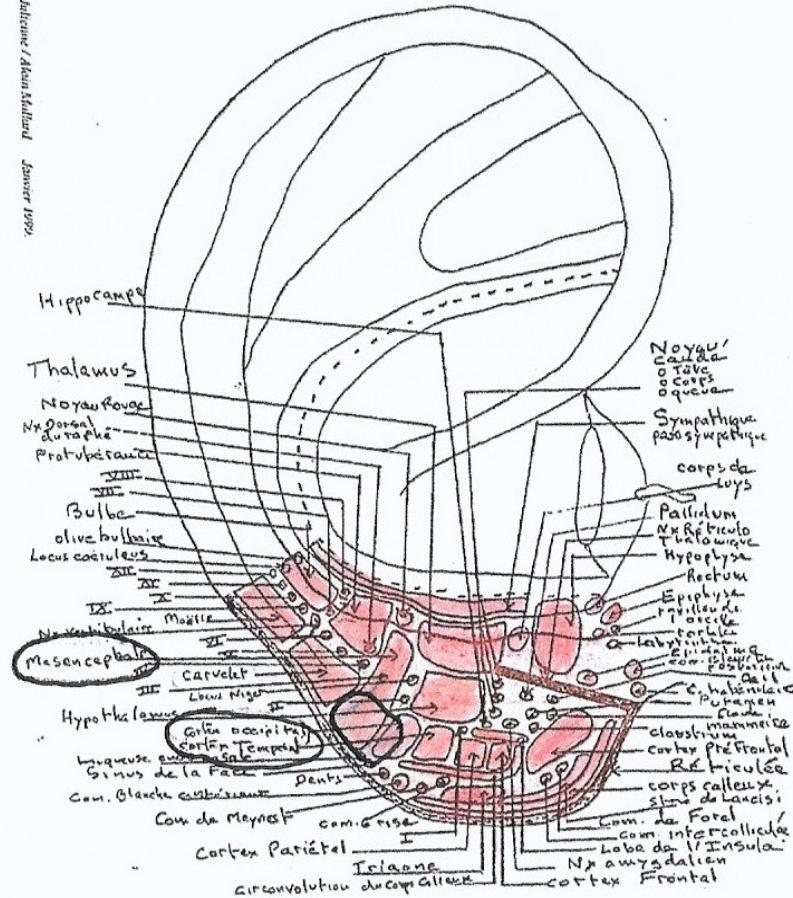 Julienne / Alain Mallard Janvier 1999.
Hippocampe
Thalamus
Noyau Rouge
Nx Dorsal
du raphé
Protubérance
VIII
VII
Bulbe
olive bulbaire
Locus coeruleus
XII
XI
X
IX
Moëlle
Nx vestibulaire
VI
Mesencephale
III
Cervelet
Locus Niger
II
Hypothalamus
Cortex occipital
Cortex Temporal
Sinus de la Face
Dents
Com. Blanche
Com. Grise
I
Cortex Pariétal
Trigone
circonvolution du corps calleux
Noyau
Caudé
o Tête
o Corps
o queue
Sympathique
parasympathique
corps de
Luys
Pallidum
Nx Réticulo
Thalamique
Hypophyse
Rectum
Epiphyse
Labyrinthe
Putamen
Claustrum
Cortex PréFrontal
Réticulée
corps calleux
strie de Lancisi
Com. de Forel
Com. intercolliculée
Lobe de l'Insula
Nx amygdalien
Cortex Frontal